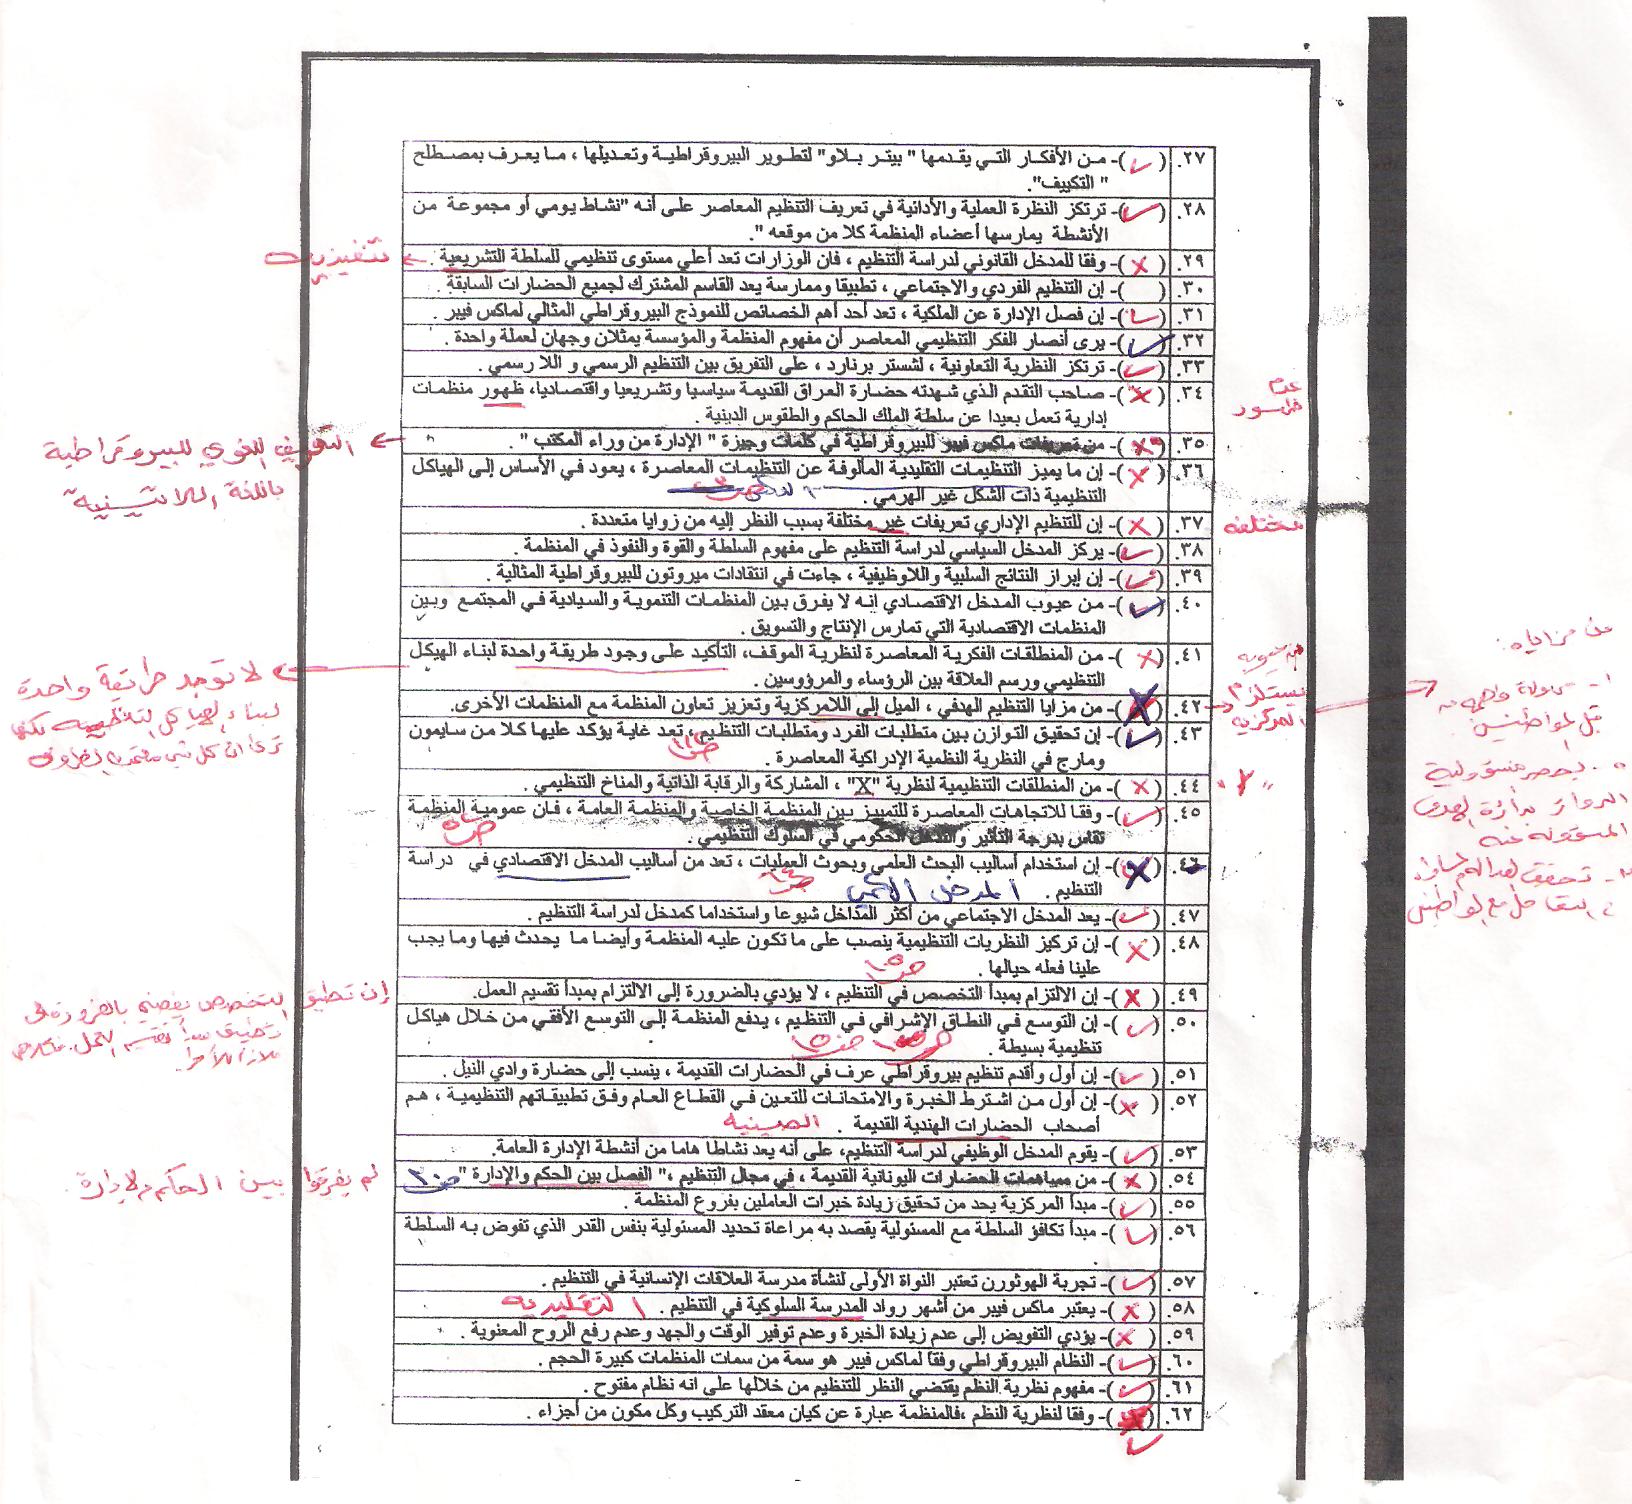 ٢٧. (✓)- من الأفكار التي يقدمها " بيتر بلاو" لتطوير البيروقراطية وتعديلها ، ما يعرف بمصطلح
" التكييف".
٢٨. (✓)- ترتكز النظرة العملية والأداتية في تعريف التنظيم المعاصر على أنه "نشاط يومي أو مجموعة من
الأنشطة يمارسها أعضاء المنظمة كلا من موقعه ".
٢٩. (x)- وفقا للمدخل القانوني لدراسة التنظيم ، فان الوزارات تعد أعلي مستوى تنظيمي للسلطة التشريعية .
تنفيذية
٣٠. ( )- إن التنظيم الفردي والاجتماعي ، تطبيقا وممارسة يعد القاسم المشترك لجميع الحضارات السابقة .
٣١. (✓)- إن فصل الإدارة عن الملكية ، تعد أحد أهم الخصائص للنموذج البيروقراطي المثالي لماكس فيبر .
٣٢. (✓)- يرى أنصار الفكر التنظيمي المعاصر أن مفهوم المنظمة والمؤسسة يمثلان وجهان لعملة واحدة .
٣٣. (✓)- ترتكز النظرية التعاونية ، لشستر برنارد ، على التفريق بين التنظيم الرسمي و اللا رسمي.
عدم
٣٤. (x)- صاحب التقدم الذي شهدته حضارة العراق القديمة سياسيا وتشريعيا واقتصاديا، ظهور منظمات
إدارية تعمل بعيدا عن سلطة الملك الحاكم والطقوس الدينية .
٣٥. (x)- من تعريفات ماكس فيبر للبيروقراطية في كلمات وجيزة " الإدارة من وراء المكتب " .
التعريف اللغوي للبيروقراطية
باللغة اللاتينية
٣٦. (x)- إن ما يميز التنظيمات التقليدية المألوفة عن التنظيمات المعاصرة ، يعود في الأساس إلى الهياكل
التنظيمية ذات الشكل غير الهرمي .
٣٧. (x)- إن للتنظيم الإداري تعريفات غير مختلفة بسبب النظر إليه من زوايا متعددة .
مختلفه
٣٨. (✓)- يركز المدخل السياسي لدراسة التنظيم على مفهوم السلطة والقوة والنفوذ في المنظمة .
٣٩. (✓)- إن إبراز النتائج السلبية واللاوظيفية ، جاءت في انتقادات ميروتون للبيروقراطية المثالية .
٤٠. (✓)- من عيوب المدخل الاقتصادي إنه لا يفرق بين المنظمات التنموية والسيادية في المجتمع وبين
المنظمات الاقتصادية التي تمارس الإنتاج والتسويق .
٤١. (x)- من المنطلقات الفكرية المعاصرة لنظرية الموقف، التأكيد على وجود طريقة واحدة لبناء الهيكل
التنظيمي ورسم العلاقة بين الرؤساء والمرؤوسين .
لا توجد طريقة واحدة
لبناء الهياكل التنظيمية
من عيوبه
يستلزم
المركزية
٤٢. (x)- من مزايا التنظيم الهدفي ، الميل إلى اللامركزية وتعزيز تعاون المنظمة مع المنظمات الأخرى.
من مزاياه:
٤٣. (✓)- إن تحقيق التوازن بين متطلبات الفرد ومتطلبات التنظيم ، تعد غاية يؤكد عليها كلا من سايمون
ومارج في النظرية النظمية الإدراكية المعاصرة .
٤٤. (x)- من المنطلقات التنظيمية لنظرية "X" ، المشاركة والرقابة الذاتية والمناخ التنظيمي .
"y"
٤٥. (✓)- وفقا للاتجاهات المعاصرة للتمييز بين المنظمة الخاصة والمنظمة العامة ، فان عمومية المنظمة
تقاس بدرجة التأثير والتدخل الحكومي في السلوك التنظيمي .
٤٦. (x)- إن استخدام أساليب البحث العلمي وبحوث العمليات ، تعد من أساليب المدخل الاقتصادي في دراسة
التنظيم . المدخل الكمي
٤٧. (✓)- يعد المدخل الاجتماعي من أكثر المداخل شيوعا واستخداما كمدخل لدراسة التنظيم .
٤٨. (x)- إن تركيز النظريات التنظيمية ينصب على ما تكون عليه المنظمة وأيضا ما يحدث فيها وما يجب
علينا فعله حيالها .
٤٩. (x)- إن الالتزام بمبدأ التخصص في التنظيم ، لا يؤدي بالضرورة إلى الالتزام بمبدأ تقسيم العمل.
إن تطبيق التخصص يفضي بالضرورة إلى
تطبيق مبدأ تقسيم العمل
٥٠. (✓)- إن التوسع في النطاق الإشرافي في التنظيم ، يدفع المنظمة إلى التوسع الأفقي من خلال هياكل
تنظيمية بسيطة .
٥١. (✓)- إن أول وأقدم تنظيم بيروقراطي عرف في الحضارات القديمة ، ينسب إلى حضارة وادي النيل .
٥٢. (x)- إن أول من اشترط الخبرة والامتحانات للتعين في القطاع العام وفق تطبيقاتهم التنظيمية ، هم
أصحاب الحضارات الهندية القديمة . الصينيه
٥٣. (✓)- يقوم المدخل الوظيفي لدراسة التنظيم، على أنه يعد نشاطا هاما من أنشطة الإدارة العامة.
٥٤. (x)- من مساهمات الحضارات اليونانية القديمة ، في مجال التنظيم ،" الفصل بين الحكم والإدارة " ص٢٠
لم يفرقوا بين الحكم والإدارة
٥٥. (✓)- مبدأ المركزية يحد من تحقيق زيادة خبرات العاملين بفروع المنظمة .
٥٦. (✓)- مبدأ تكافؤ السلطة مع المسئولية يقصد به مراعاة تحديد المسئولية بنفس القدر الذي تفوض به السلطة
.
٥٧. (✓)- تجربة الهوثورن تعتبر النواة الأولى لنشأة مدرسة العلاقات الإنسانية في التنظيم .
٥٨. (x)- يعتبر ماكس فيبر من أشهر رواد المدرسة السلوكية في التنظيم . التقليديه
٥٩. (x)- يؤدي التفويض إلى عدم زيادة الخبرة وعدم توفير الوقت والجهد وعدم رفع الروح المعنوية .
٦٠. (✓)- النظام البيروقراطي وفقا لماكس فيبر هو سمة من سمات المنظمات كبيرة الحجم .
٦١. (✓)- مفهوم نظرية النظم يقتضي النظر للتنظيم من خلالها على انه نظام مفتوح .
٦٢. (x)- وفقا لنظرية النظم ،فالمنظمة عبارة عن كيان معقد التركيب وكل مكون من أجزاء .
✓